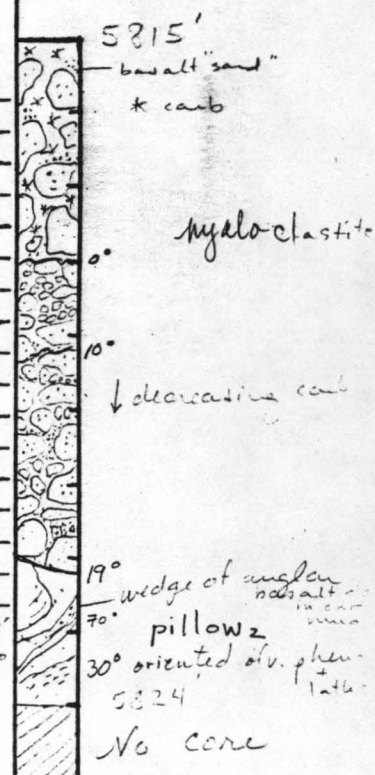 5815'
basalt "sand"
* carb
hyaloclastite
0°
10°
↓ decreasing carb
19°
wedge of angular
basalt
in
70°
pillows
30° oriented olv. phen
+
lath
5824'
No core